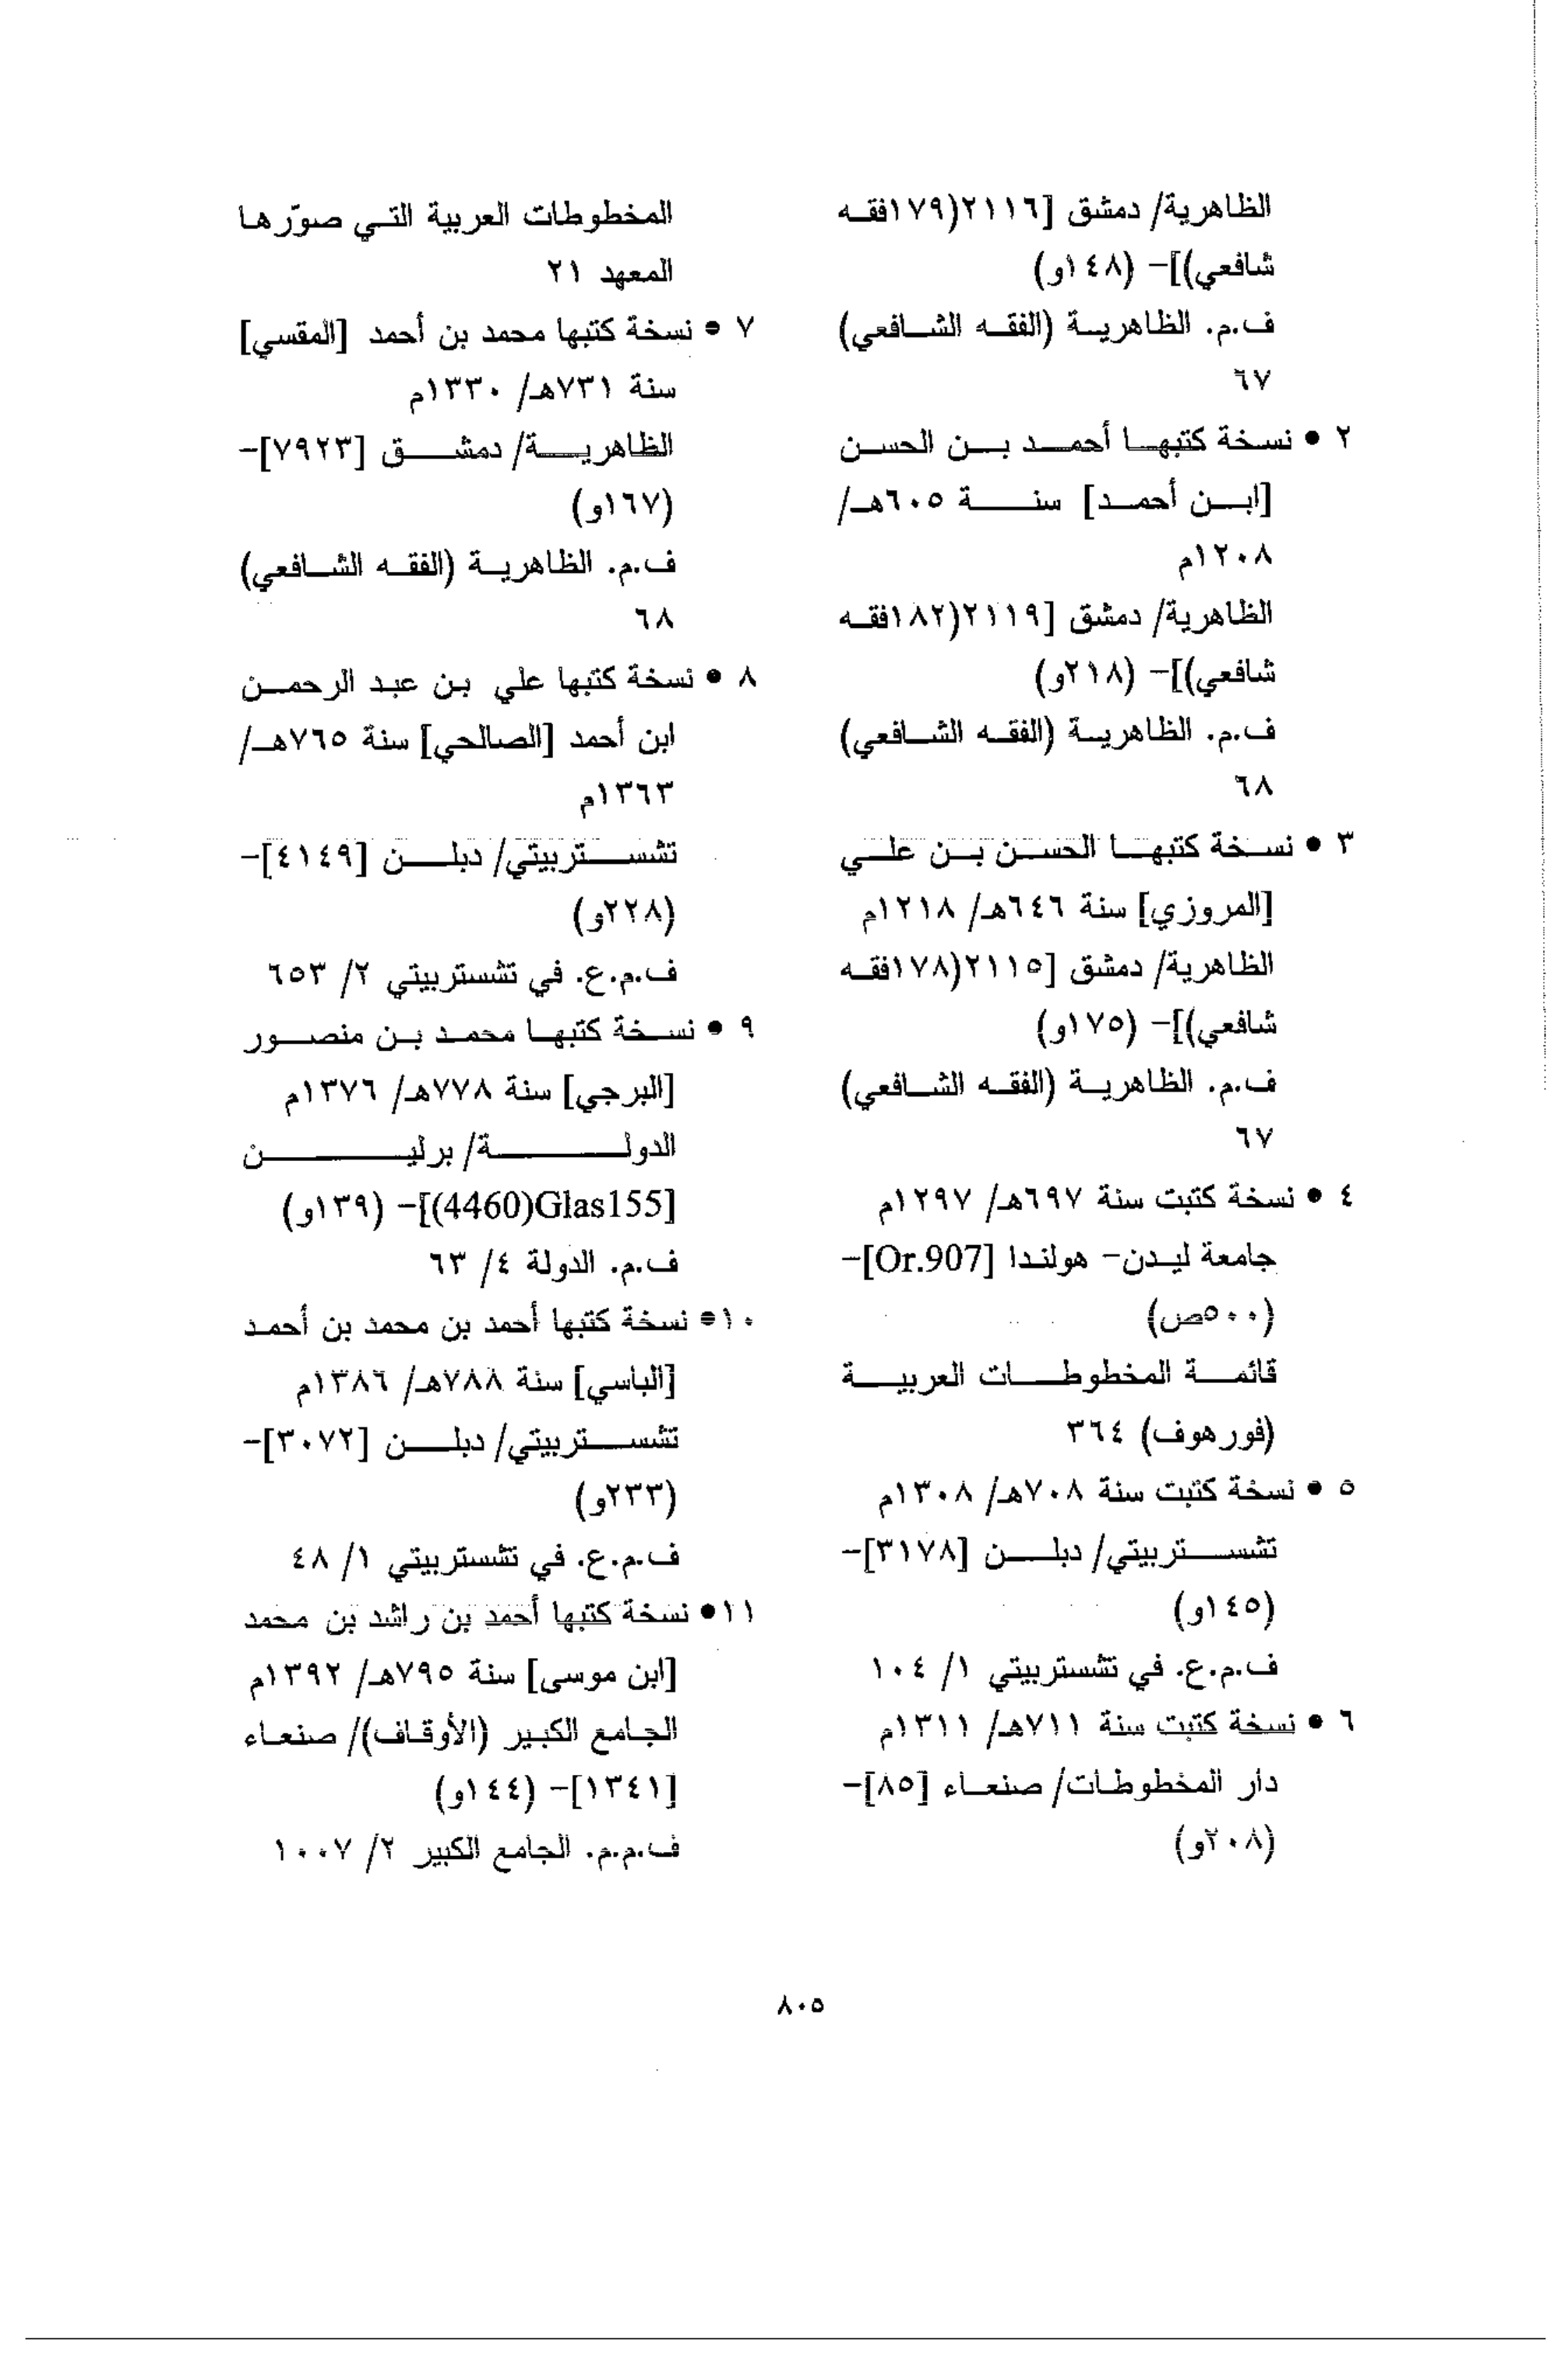 الظاهرية/ دمشق [٢١١٦(١٧٩فقه
شافعي)]- (١٤٨و)
ف.م. الظاهرية (الفقه الشافعي)
٦٧
٢ • نسخة كتبها أحمد بن الحسن
[ابن أحمد] سنة ٦٠٥هـ/
١٢٠٨م
الظاهرية/ دمشق [٢١١٩(١٨٢فقه
شافعي)]- (٢١٨و)
ف.م. الظاهرية (الفقه الشافعي)
٦٨
٣ • نسخة كتبها الحسن بن علي
[المروزي] سنة ٦٤٦هـ/ ١٢١٨م
الظاهرية/ دمشق [٢١١٥(١٧٨فقه
شافعي)]- (١٧٥و)
ف.م. الظاهرية (الفقه الشافعي)
٦٧
٤ • نسخة كتبت سنة ٦٩٧هـ/ ١٢٩٧م
جامعة ليدن- هولندا [Or.907]-
(٥٠٠ص)
قائمة المخطوطات العربية
(فورهوف) ٣٦٤
٥ • نسخة كتبت سنة ٧٠٨هـ/ ١٣٠٨م
تشستربيتي/ دبلن [٣١٧٨]-
(١٤٥و)
ف.م.ع. في تشستربيتي ١/ ١٠٤
٦ • نسخة كتبت سنة ٧١١هـ/ ١٣١١م
دار المخطوطات/ صنعاء [٨٥]-
(٢٠٨و)
المخطوطات العربية التي صوّرها
المعهد ٢١
٧ • نسخة كتبها محمد بن أحمد [المقسي]
سنة ٧٣١هـ/ ١٣٣٠م
الظاهرية/ دمشق [٧٩٢٣]-
(١٦٧و)
ف.م. الظاهرية (الفقه الشافعي)
٦٨
٨ • نسخة كتبها علي بن عبد الرحمن
ابن أحمد [الصالحي] سنة ٧٦٥هـ/
١٣٦٣م
تشستربيتي/ دبلن [٤١٤٩]-
(٢٢٨و)
ف.م.ع. في تشستربيتي ٢/ ٦٥٣
٩ • نسخة كتبها محمد بن منصور
[البرجي] سنة ٧٧٨هـ/ ١٣٧٦م
الدولة/ برلين
[(4460)Glas155]- (١٣٩و)
ف.م. الدولة ٤/ ٦٣
١٠• نسخة كتبها أحمد بن محمد بن أحمد
[الباسي] سنة ٧٨٨هـ/ ١٣٨٦م
تشستربيتي/ دبلن [٣٠٧٢]-
(٢٣٣و)
ف.م.ع. في تشستربيتي ١/ ٤٨
١١• نسخة كتبها أحمد بن راشد بن محمد
[ابن موسى] سنة ٧٩٥هـ/ ١٣٩٢م
الجامع الكبير (الأوقاف)/ صنعاء
[١٣٤١]- (١٤٤و)
ف.م.م. الجامع الكبير ٢/ ١٠٠٧
٨٠٥